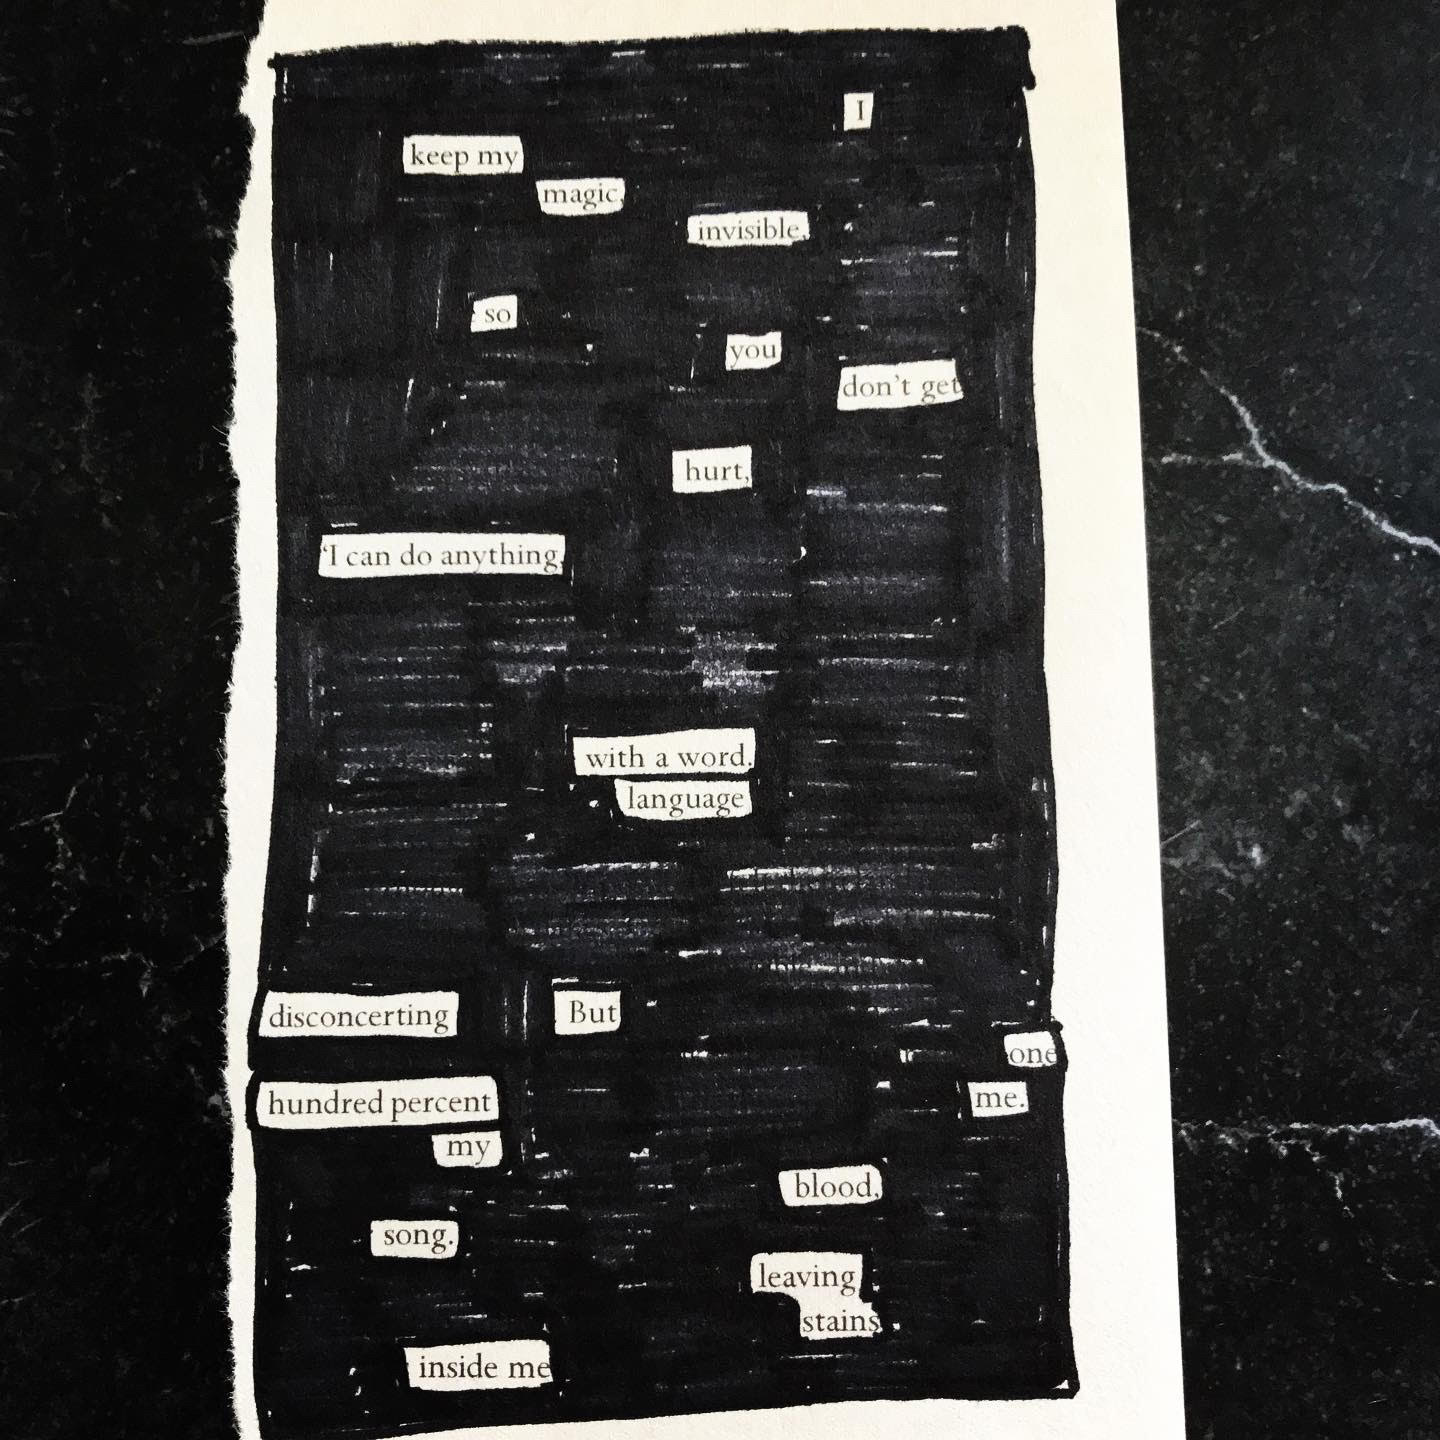 I
keep my
magic,
invisible,
so
you
don't get
hurt,
'I can do anything,
with a word.
language
disconcerting But
one
hundred percent me.
my
blood,
song.
leaving
stains
inside me